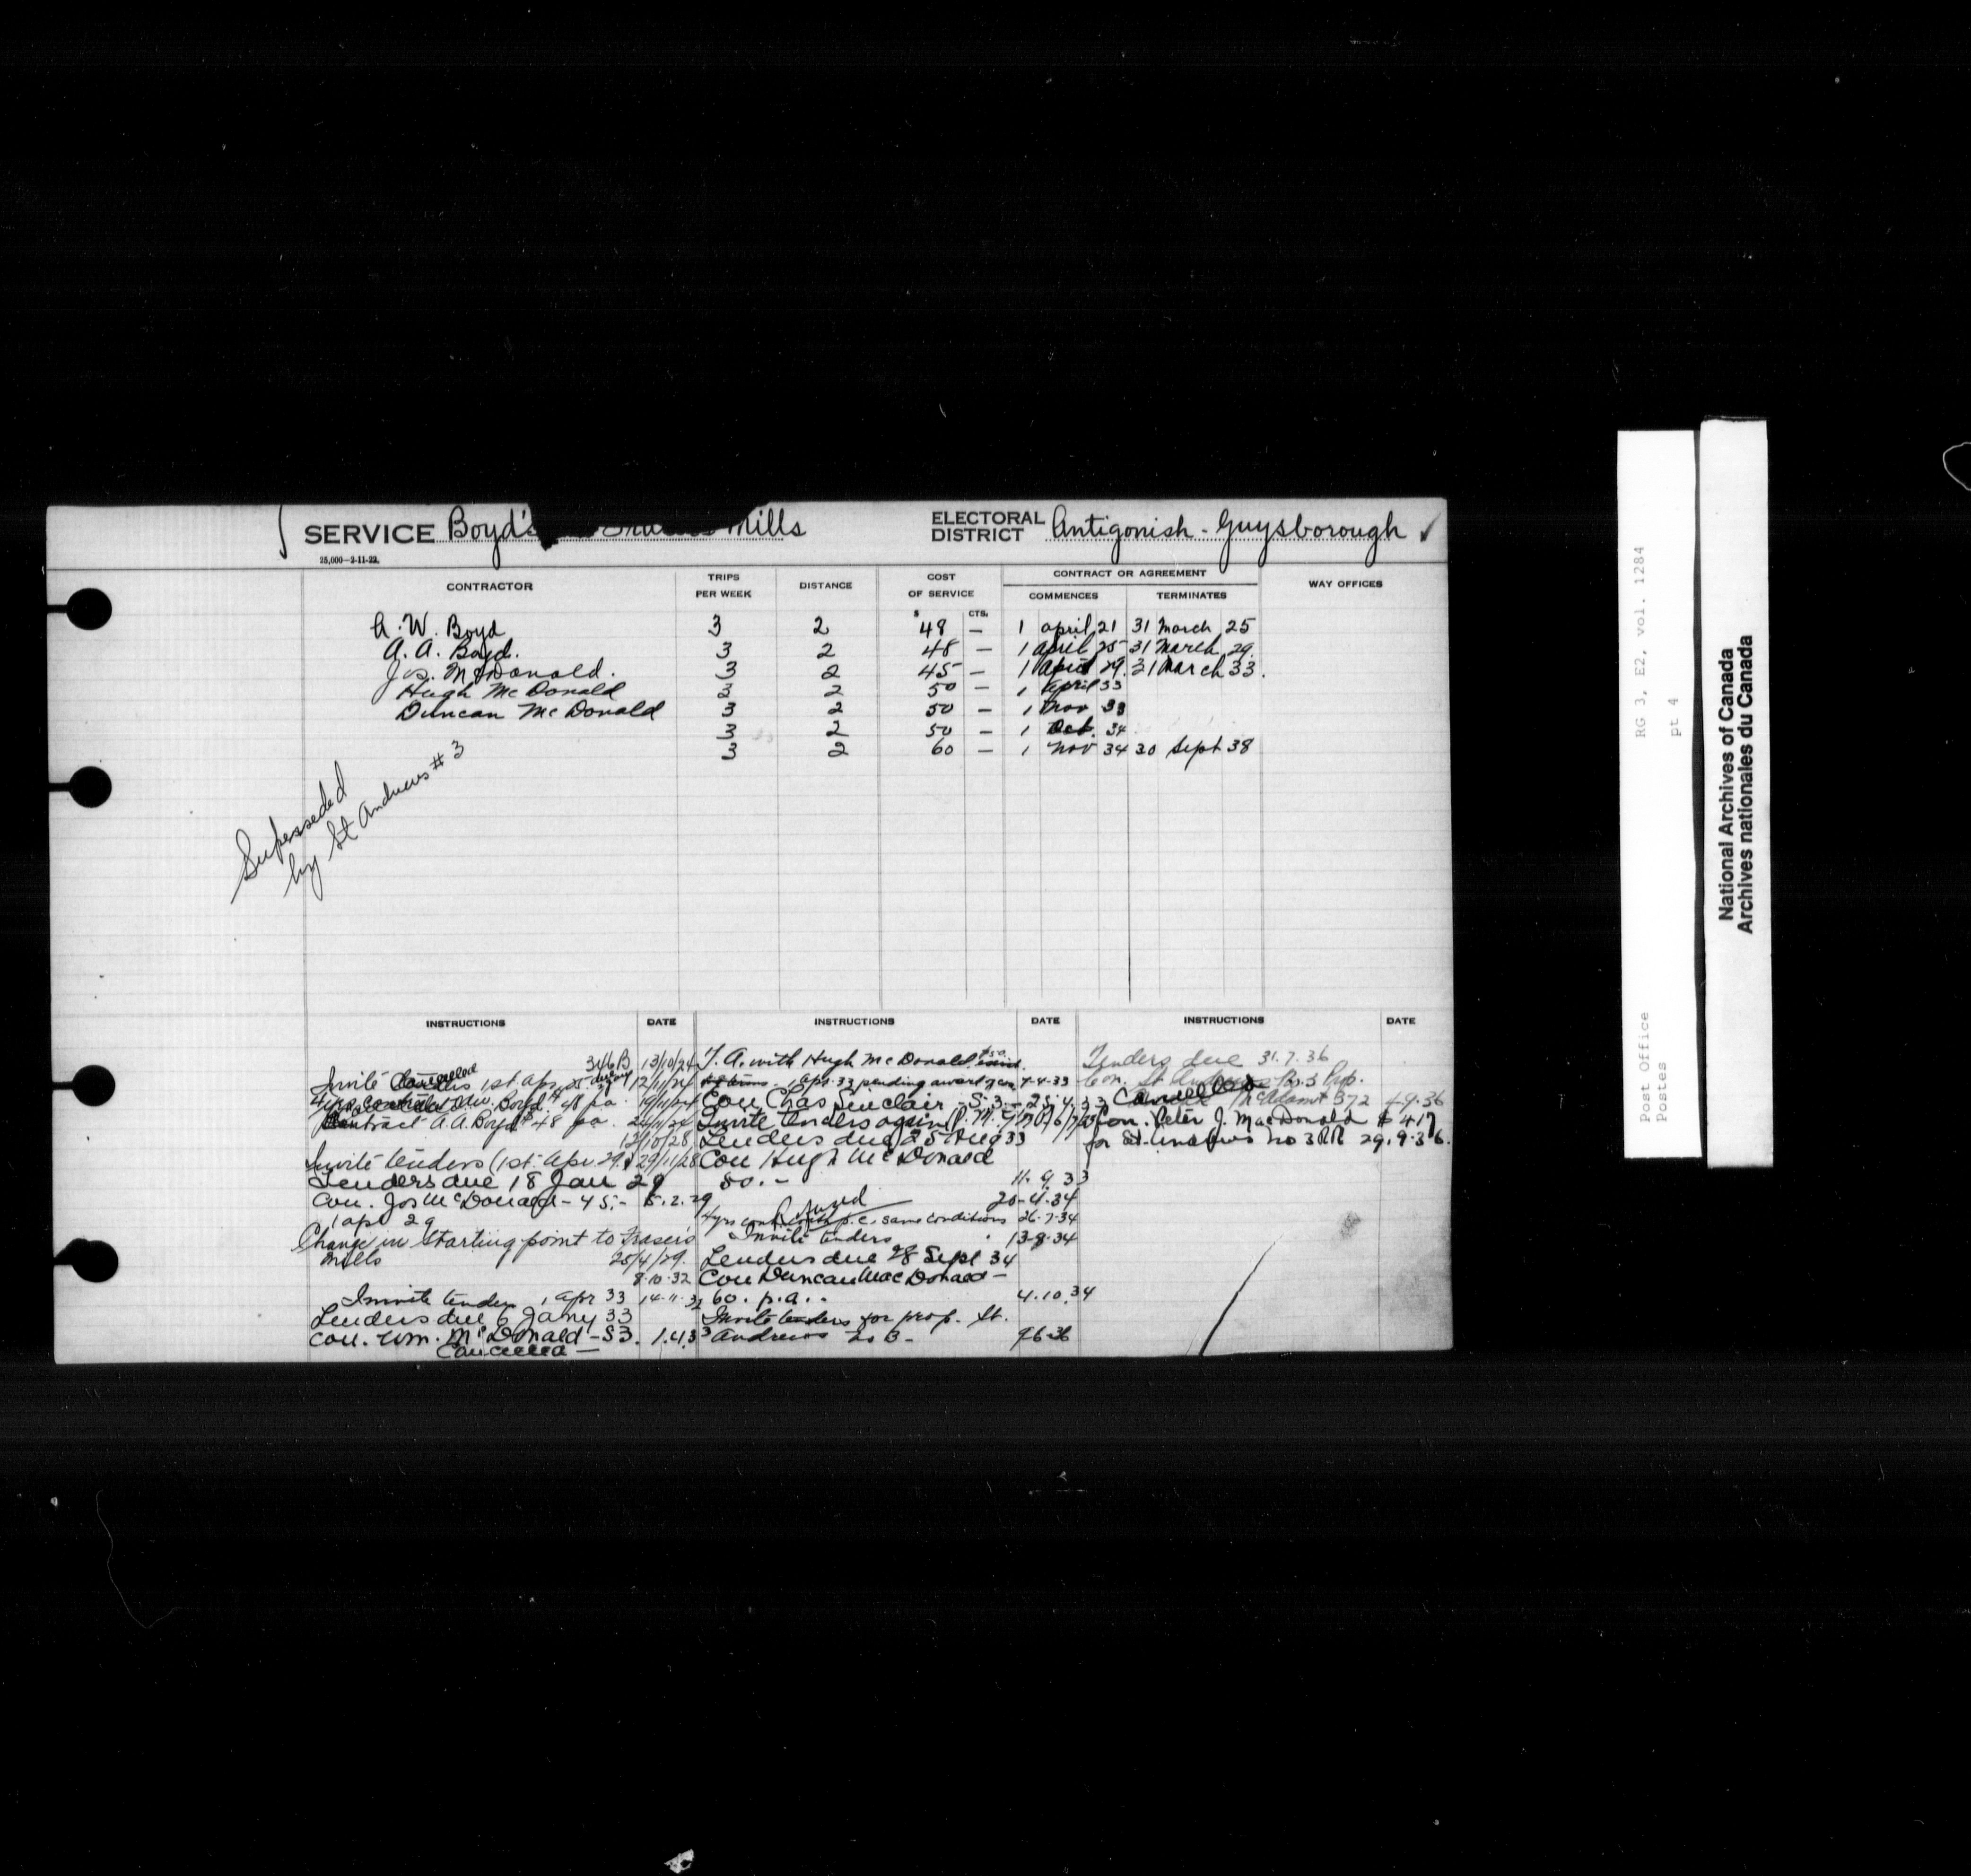 SERVICE Boyd's Mills
ELECTORAL DISTRICT Antigonish - Guysborough ✓
25,000—2-11-22.
CONTRACTOR TRIPS PER WEEK DISTANCE COST OF SERVICE CONTRACT OR AGREEMENT WAY OFFICES
COMMENCES TERMINATES
$ CTS.
A. W. Boyd 3 2 48 — 1 april 21 31 March 25
A. A. Boyd. 3 2 48 — 1 april 25 31 March 29.
Jos. McDonald. 3 2 45 — 1 april 29. 31 March 33.
Hugh McDonald 3 2 50 — 1 april 33
Duncan McDonald 3 2 50 — 1 Nov 33
3 2 50 — 1 Oct. 34
3 2 60 — 1 Nov 34 30 Sept 38
Superseded
by St Andrews #3
INSTRUCTIONS DATE INSTRUCTIONS DATE INSTRUCTIONS DATE
346B 13/10/24
Invite tenders 1st apr, 25 12/11/24
Cancelled
4 yrs contract Aw. Boyd 48 pa. 19/11/24
Contract A.A. Boyd $48 pa. 24/11/24
12/10/28
Invite tenders (1st. Apr. 29.) 29/11/28
Tenders due 18 Jan 29
Con. Jos McDonald - 45.- 5.2.29
1 apl 29
Change in starting point to Fraser's
Mills 25/4/29.
8.10.32
Invite tenders 1 apr 33 14.11.32
Tenders due 6 Jany 33
Con. Wm. McDonald - 53. 1.4.33
Cancelled —
T. A. with Hugh McDonald $50
1 apr. 33 pending award gen 4-4-33
Con Chas Sinclair - 53 - 25.4.33
Invite tenders again
Tenders due 25 Aug 33
Con Hugh McDonald
50.- 11.9.33
20-4-34
4 yrs cont. with p.c. same conditions 26.7.34
Invite tenders 13-8-34
Tenders due 28 Sept 34
Con Duncan MacDonald —
60. p.a.. 4.10.34
Invite tenders for prop. St.
Andrews No 3 - 9-6-36
Tenders due 31.7.36
Con. St Andrews Pro.
Cancelled McAdam 372 4-9-36
Con. Peter J. MacDonald $417
for St Andrews No 3 RR 29.9.36.
Post Office RG 3, E2, vol. 1284
Postes pt 4
National Archives of Canada
Archives nationales du Canada